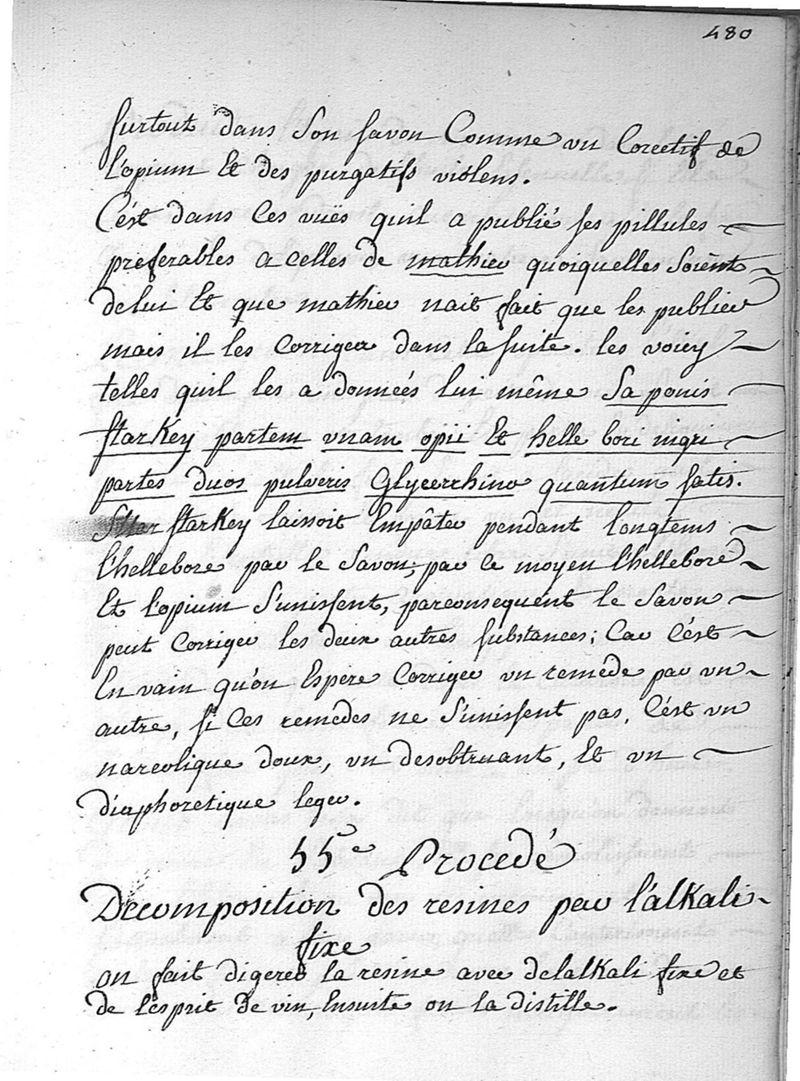 480
surtout dans son savon Comme un Corectif de
l'opium Et des purgatifs violens.
C'est dans Ces vuës quil a publié ses pillules
preferables a celles de mathieu quoiquelles Soient
delui Et que mathieu nait fait que les publier
mais il les Corrigea dans la suite. les voicy
telles quil les a donnéés lui même Saponis
starKey partem unam opii Et helle bori nigri
partes duos pulveris Glycerrhino quantum satis.
starKey laissoit Empâter pendant longtems
l'hellebore par le Savon, par ce moyen l'hellebore
Et l'opium S'unissent, parconsequent le Savon
peut Corriger les deux autres substances; Car C'est
En vain qu'on Espere Corriger un remède par un
autre, si Ces remedes ne S'unissent pas, C'est un
narcotique doux, un desobtruant, Et un
diaphoretique leger.
55e Procedé
Decomposition des resines par l'alkali
fixe
on fait digerer la resine avec delalkali fixe et
de l'esprit de vin, Ensuite on la distille.